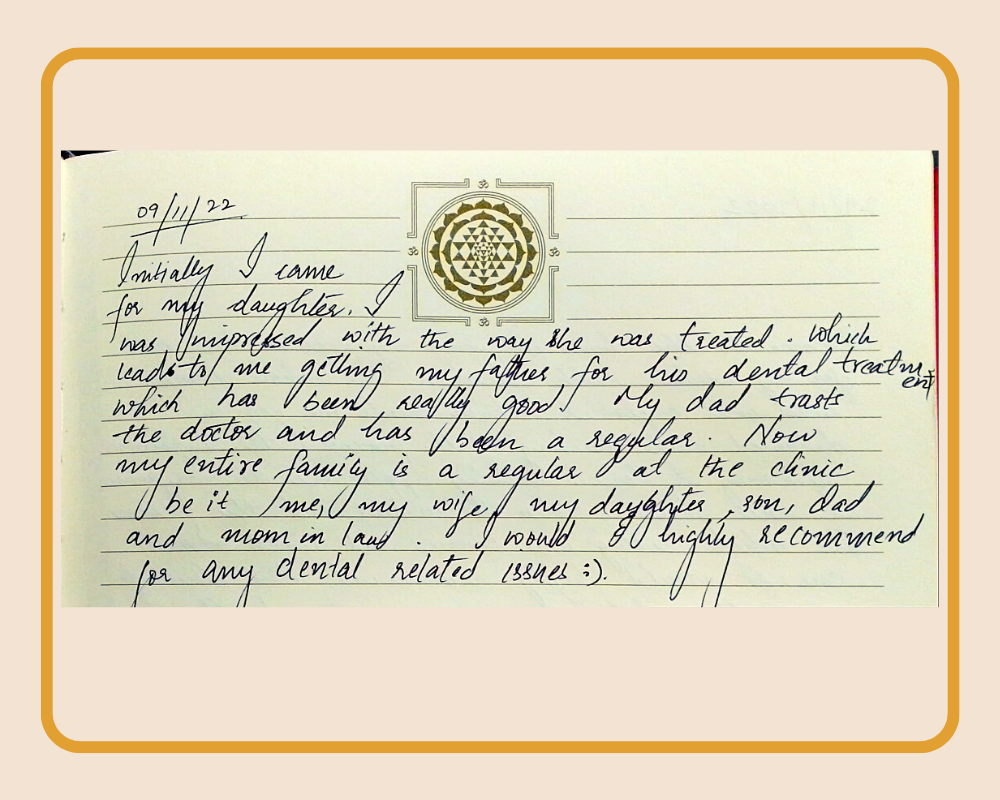 09/11/22
Initially I came
for my daughter. I
was impressed with the way she was treated. Which
leads to me getting my father for his dental treatment
which has been really good. My dad trusts
the doctor and has been a regular. Now
my entire family is a regular at the clinic
be it me, my wife, my daughter, son, Dad
and mom in law. I would highly recommend
for any dental related issues :).